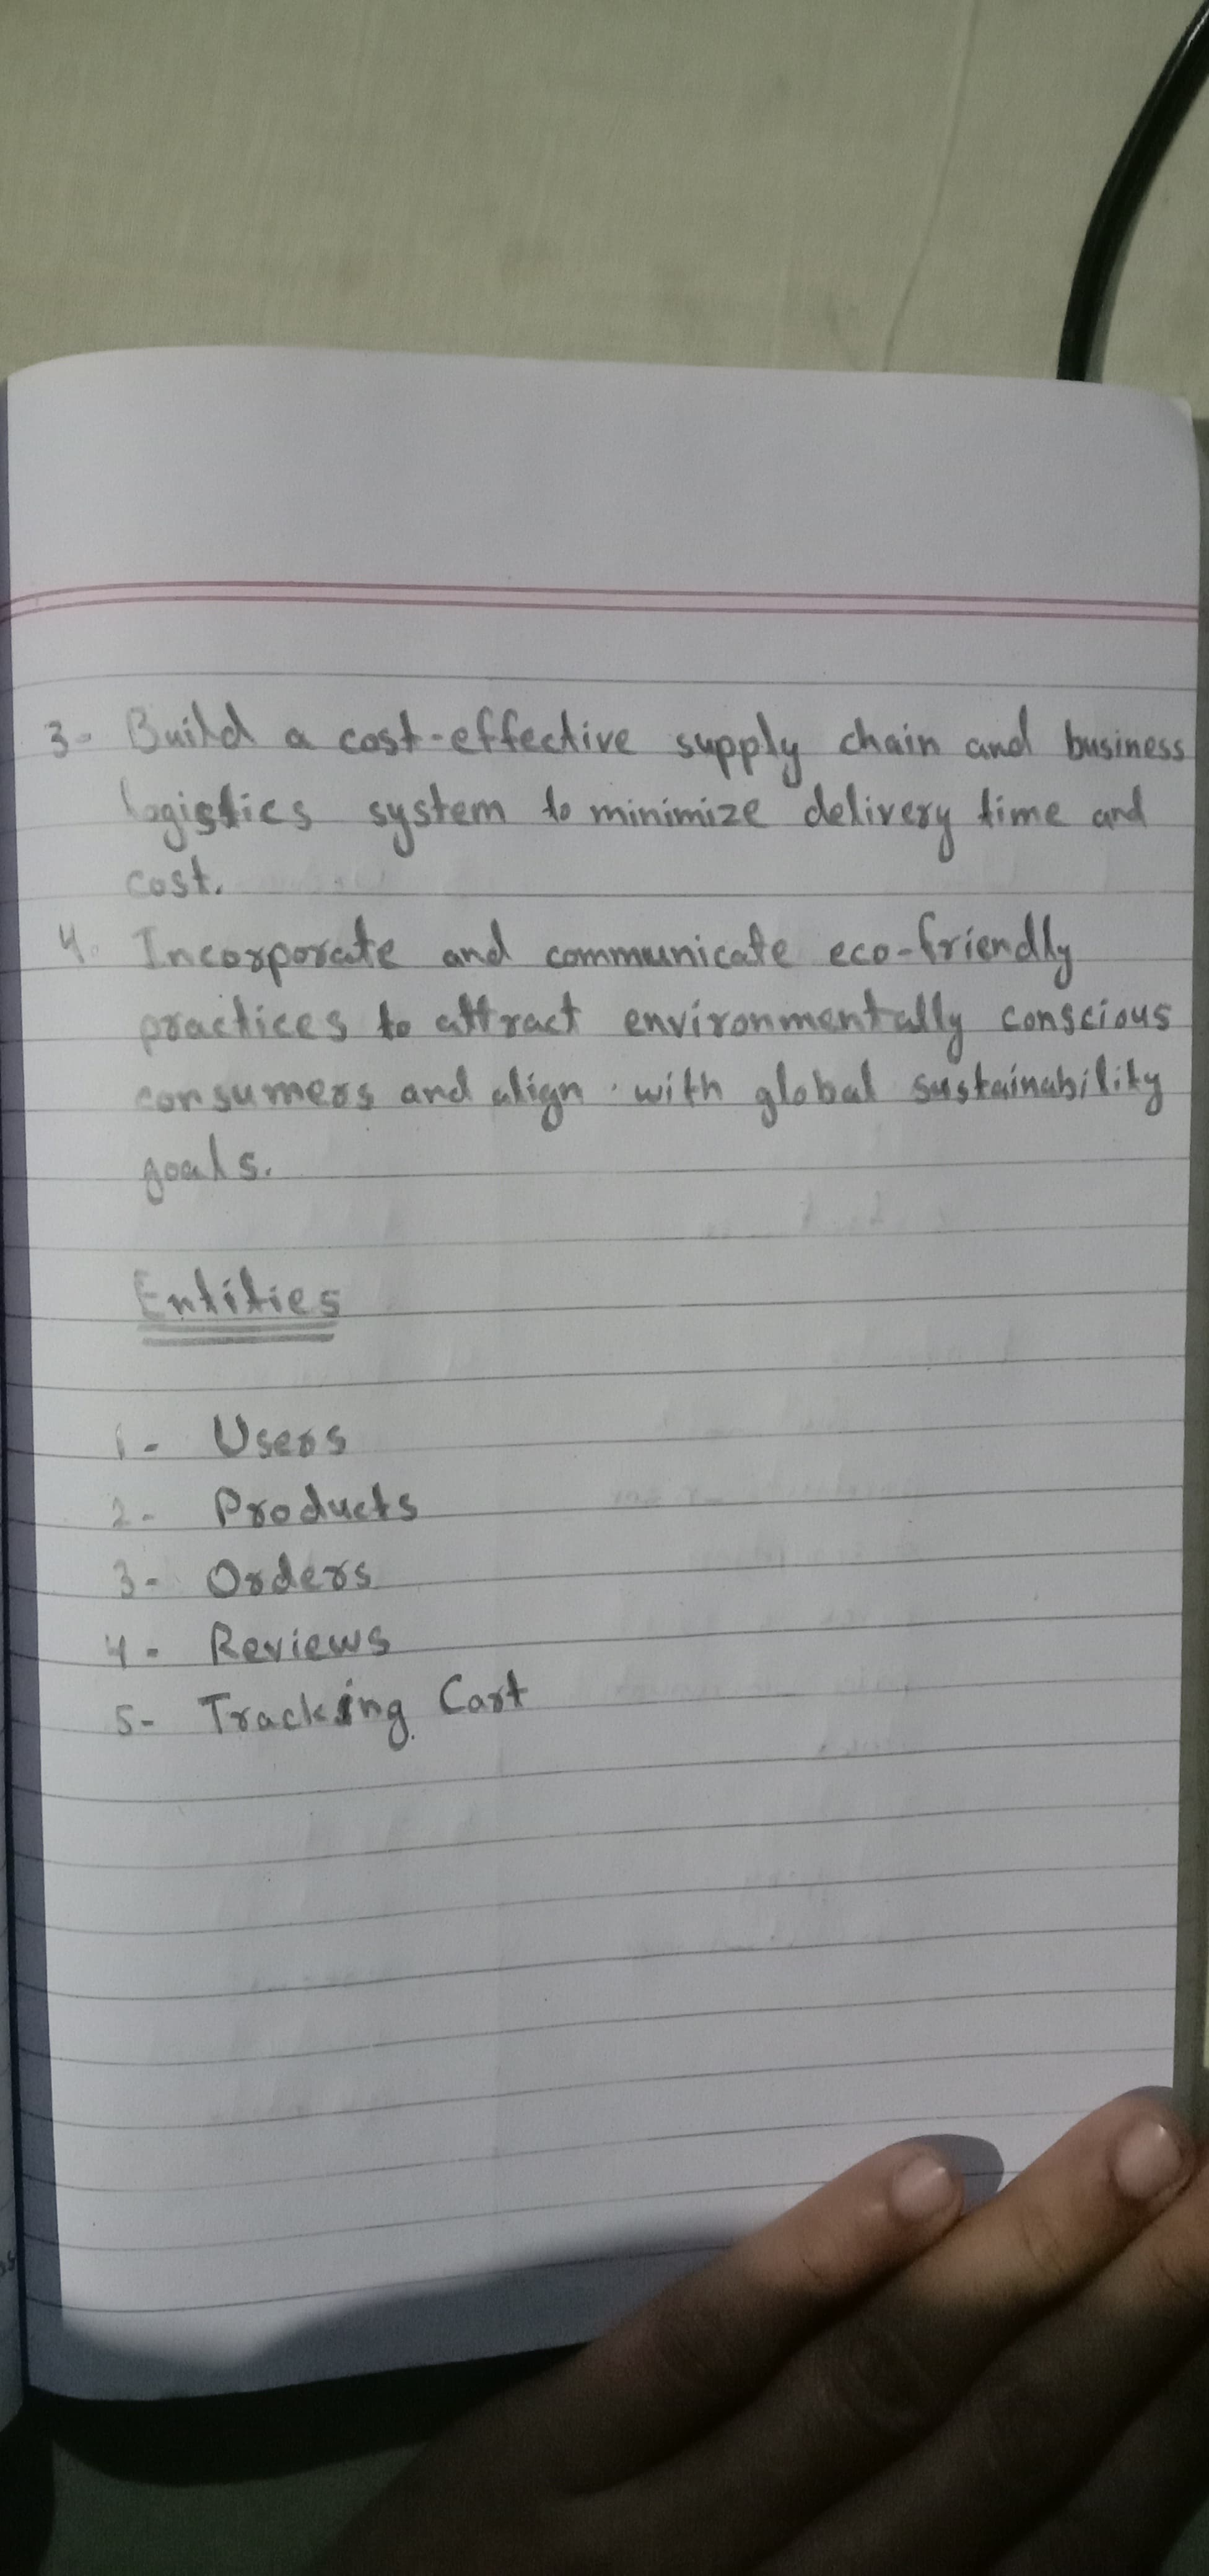 3- Build a cost-effective supply chain and business
logistics system to minimize delivery time and
cost.
4. Incorporate and communicate eco-friendly
practices to attract environmentally conscious
consumers and align with global sustainability
goals.
Entities
1- Users
2- Products
3- Orders
4- Reviews
5- Tracking Cart